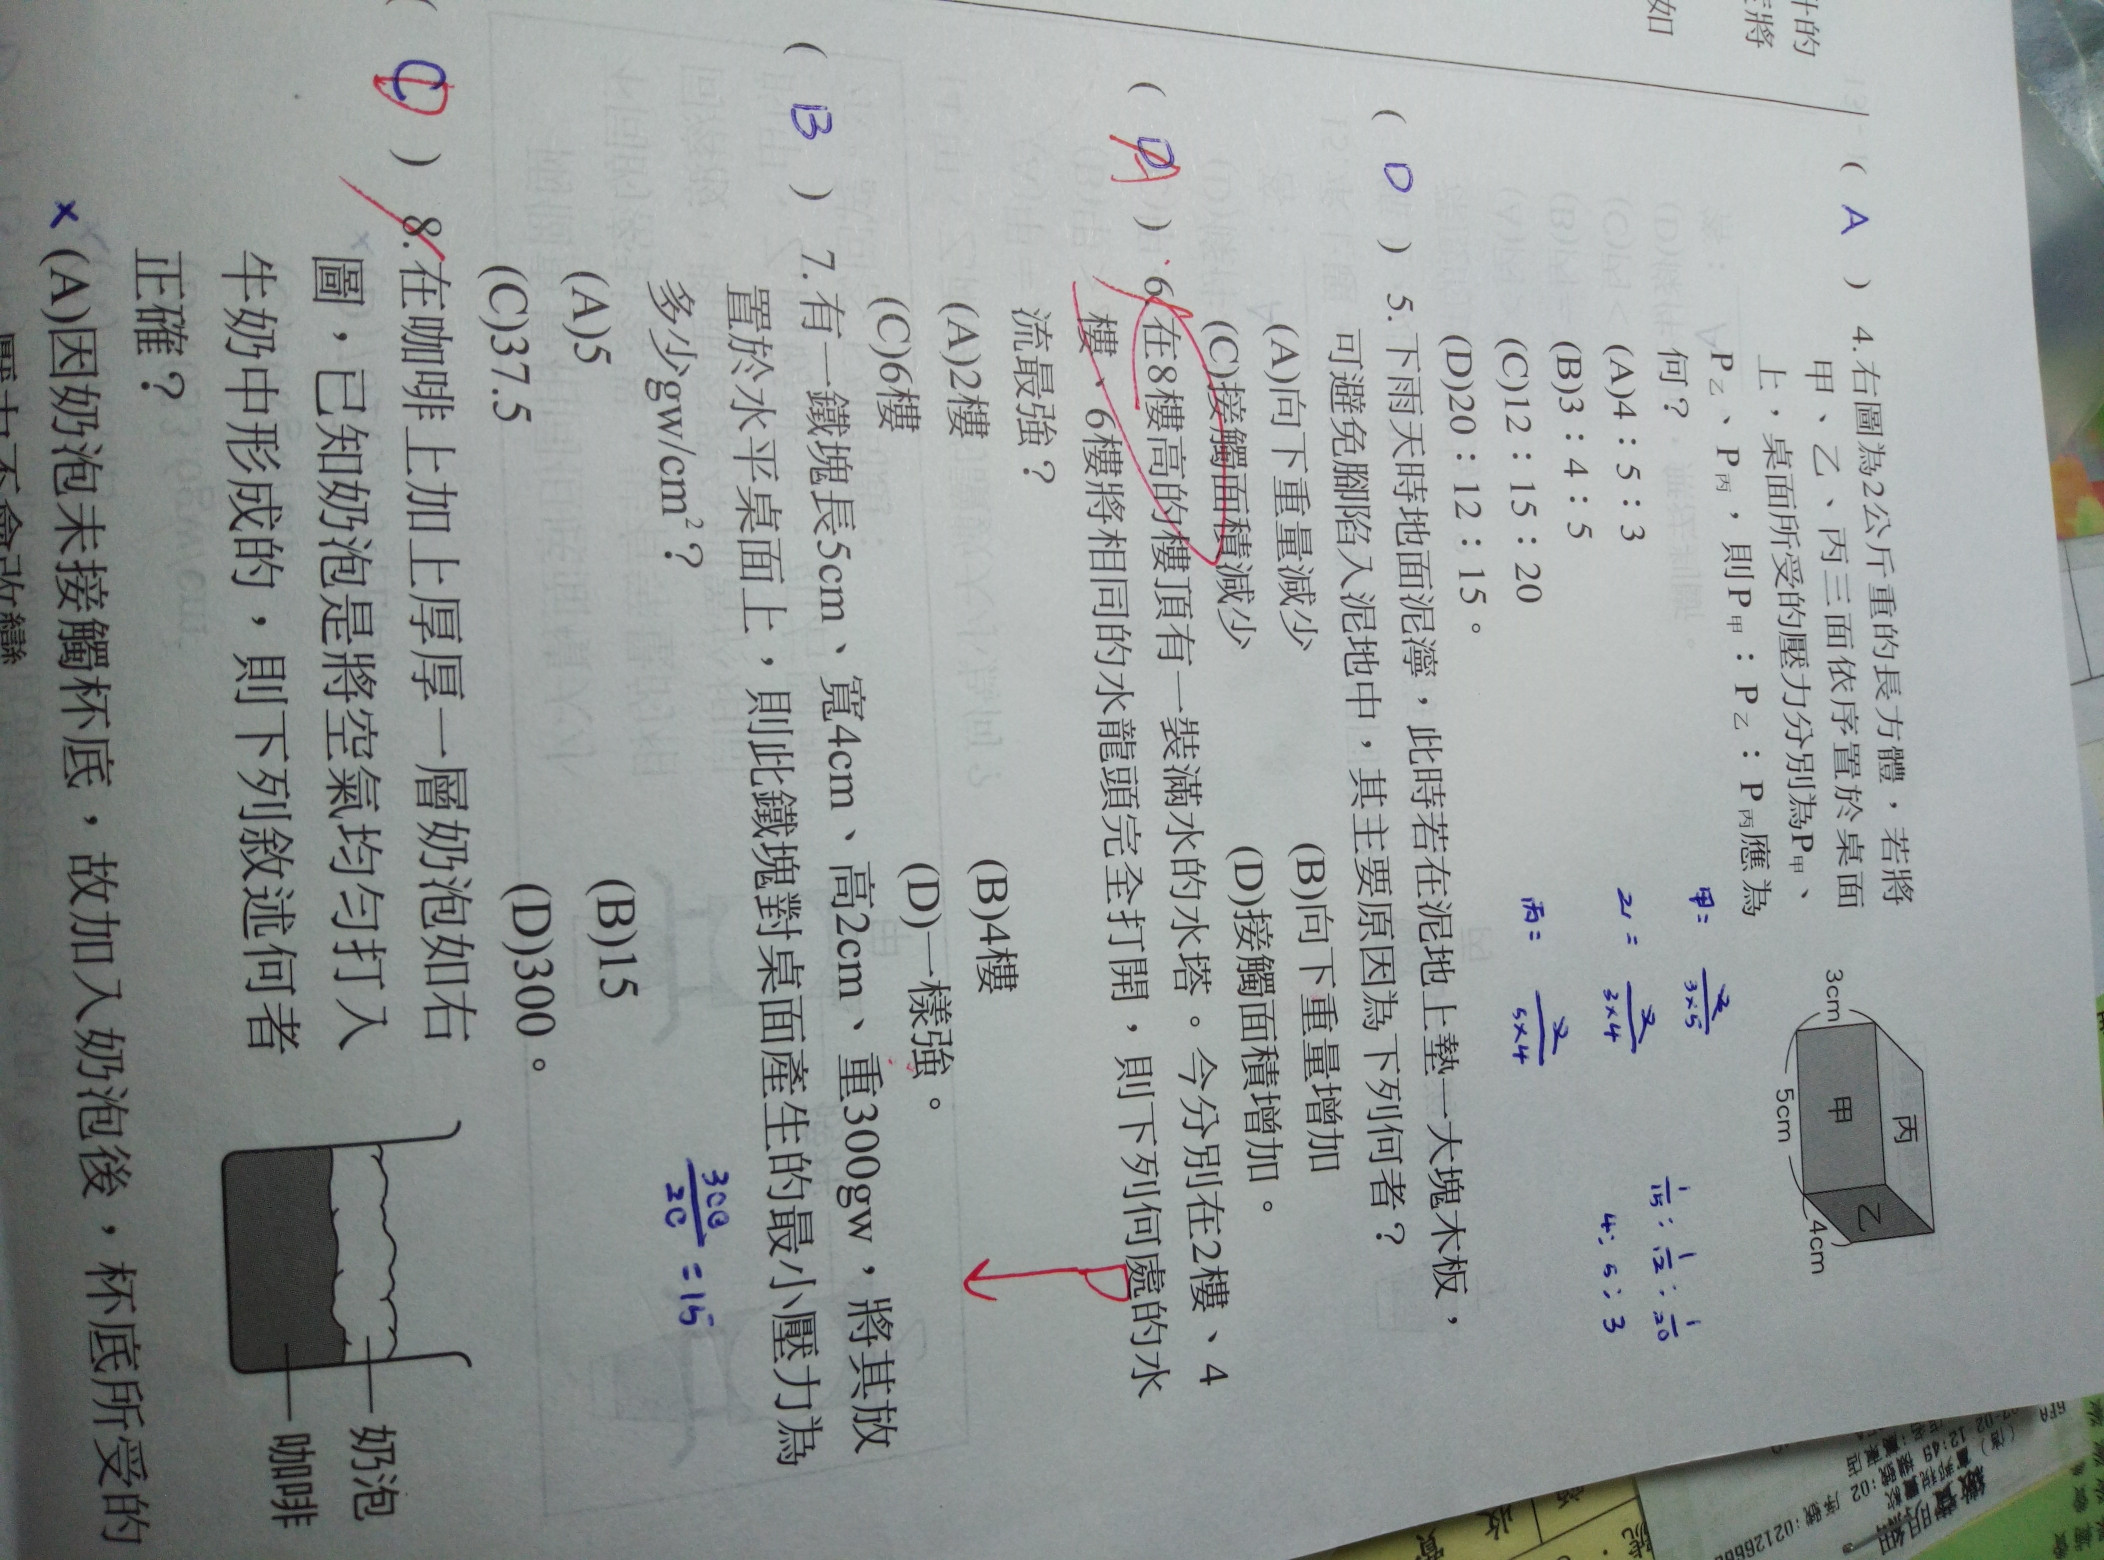 ( A ) 4.右圖為2公斤重的長方體，若將
甲、乙、丙三面依序置於桌面
上，桌面所受的壓力分別為P甲、
P乙、P丙，則P甲：P乙：P丙應為
何？
(A)4：5：3
(B)3：4：5
(C)12：15：20
(D)20：12：15。
3cm
甲
丙
乙
5cm
4cm
甲= 2/3×5
乙= 2/3×4
丙= 2/5×4
1/15 : 1/12 : 1/20
4 : 5 : 3
( D ) 5.下雨天時地面泥濘，此時若在泥地上墊一大塊木板，
可避免腳陷入泥地中，其主要原因為下列何者？
(A)向下重量減少 (B)向下重量增加
(C)接觸面積減少 (D)接觸面積增加。
( A ) 6.在8樓高的樓頂有一裝滿水的水塔。今分別在2樓、4
樓、6樓將相同的水龍頭完全打開，則下列何處的水
流最強？
(A)2樓 (B)4樓
(C)6樓 (D)一樣強。
( B ) 7.有一鐵塊長5cm、寬4cm、高2cm、重300gw，將其放
置於水平桌面上，則此鐵塊對桌面產生的最小壓力為
多少gw/cm²？
300/20 = 15
(A)5 (B)15
(C)37.5 (D)300。
( D ) 8.在咖啡上加上厚厚一層奶泡如右
圖，已知奶泡是將空氣均勻打入
牛奶中形成的，則下列敘述何者
正確？
奶泡
咖啡
× (A)因奶泡未接觸杯底，故加入奶泡後，杯底所受的
壓力不會改變